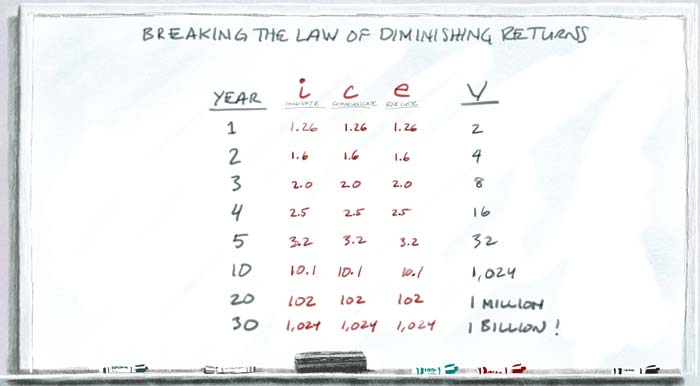 BREAKING THE LAW OF DIMINISHING RETURNS
YEAR i c e V
INNOVATE COMMUNICATE EXECUTE
1 1.26 1.26 1.26 2
2 1.6 1.6 1.6 4
3 2.0 2.0 2.0 8
4 2.5 2.5 2.5 16
5 3.2 3.2 3.2 32
10 10.1 10.1 10.1 1,024
20 102 102 102 1 MILLION
30 1,024 1,024 1,024 1 BILLION!